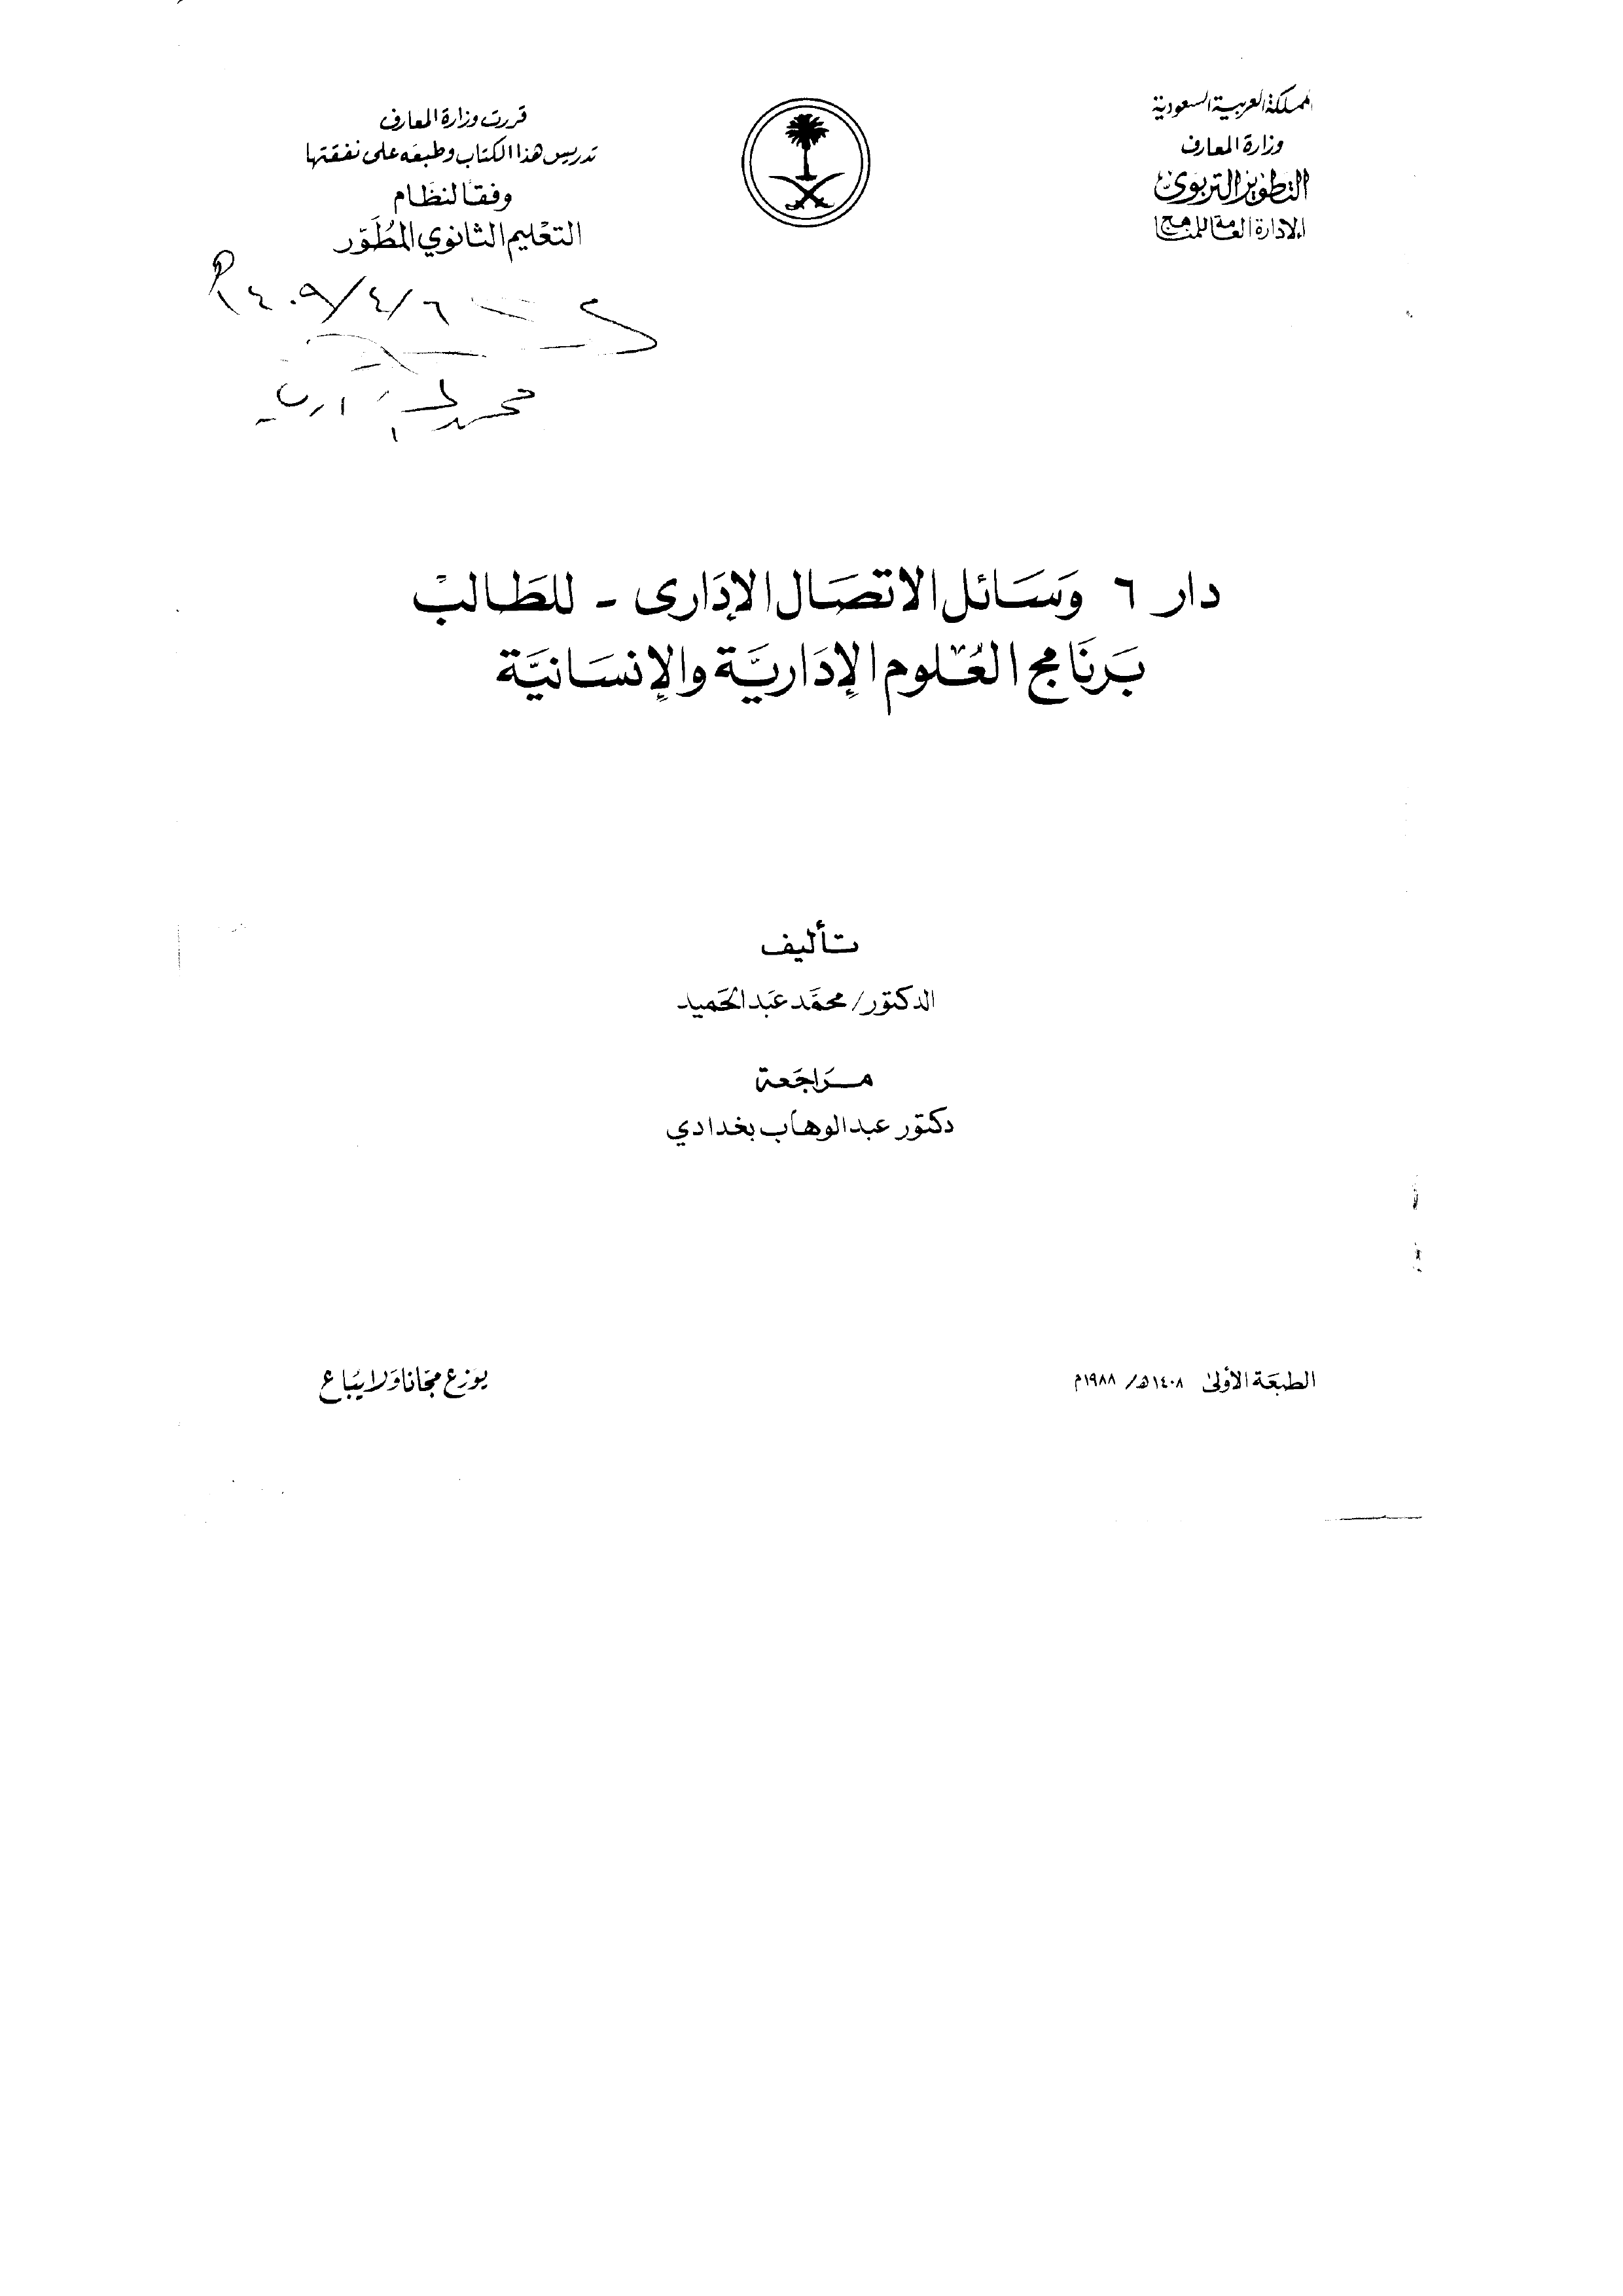 المملكة العربية السعودية
وزارة المعارف
التطوير التربوي
الإدارة العامة للمناهج
قررت وزارة المعارف
تدريس هذا الكتاب وطبعه على نفقتها
وفقا لنظام
التعليم الثانوي المطوّر
١٤٠٩/٤/٦
دار ٦ وَسَائل الاتصَال الإدَارى - للطَالب
بَرنَامج العُلوم الإدَاريَّة والإنسَانيَّة
تأليف
الدكتور/ محمَّد عَبد الحَميد
مراجَعة
دكتور عبد الوهاب بغدادي
الطبعَة الأولى ١٤٠٨هـ/ ١٩٨٨م
يوزع مجّانا وَلا يبَاع